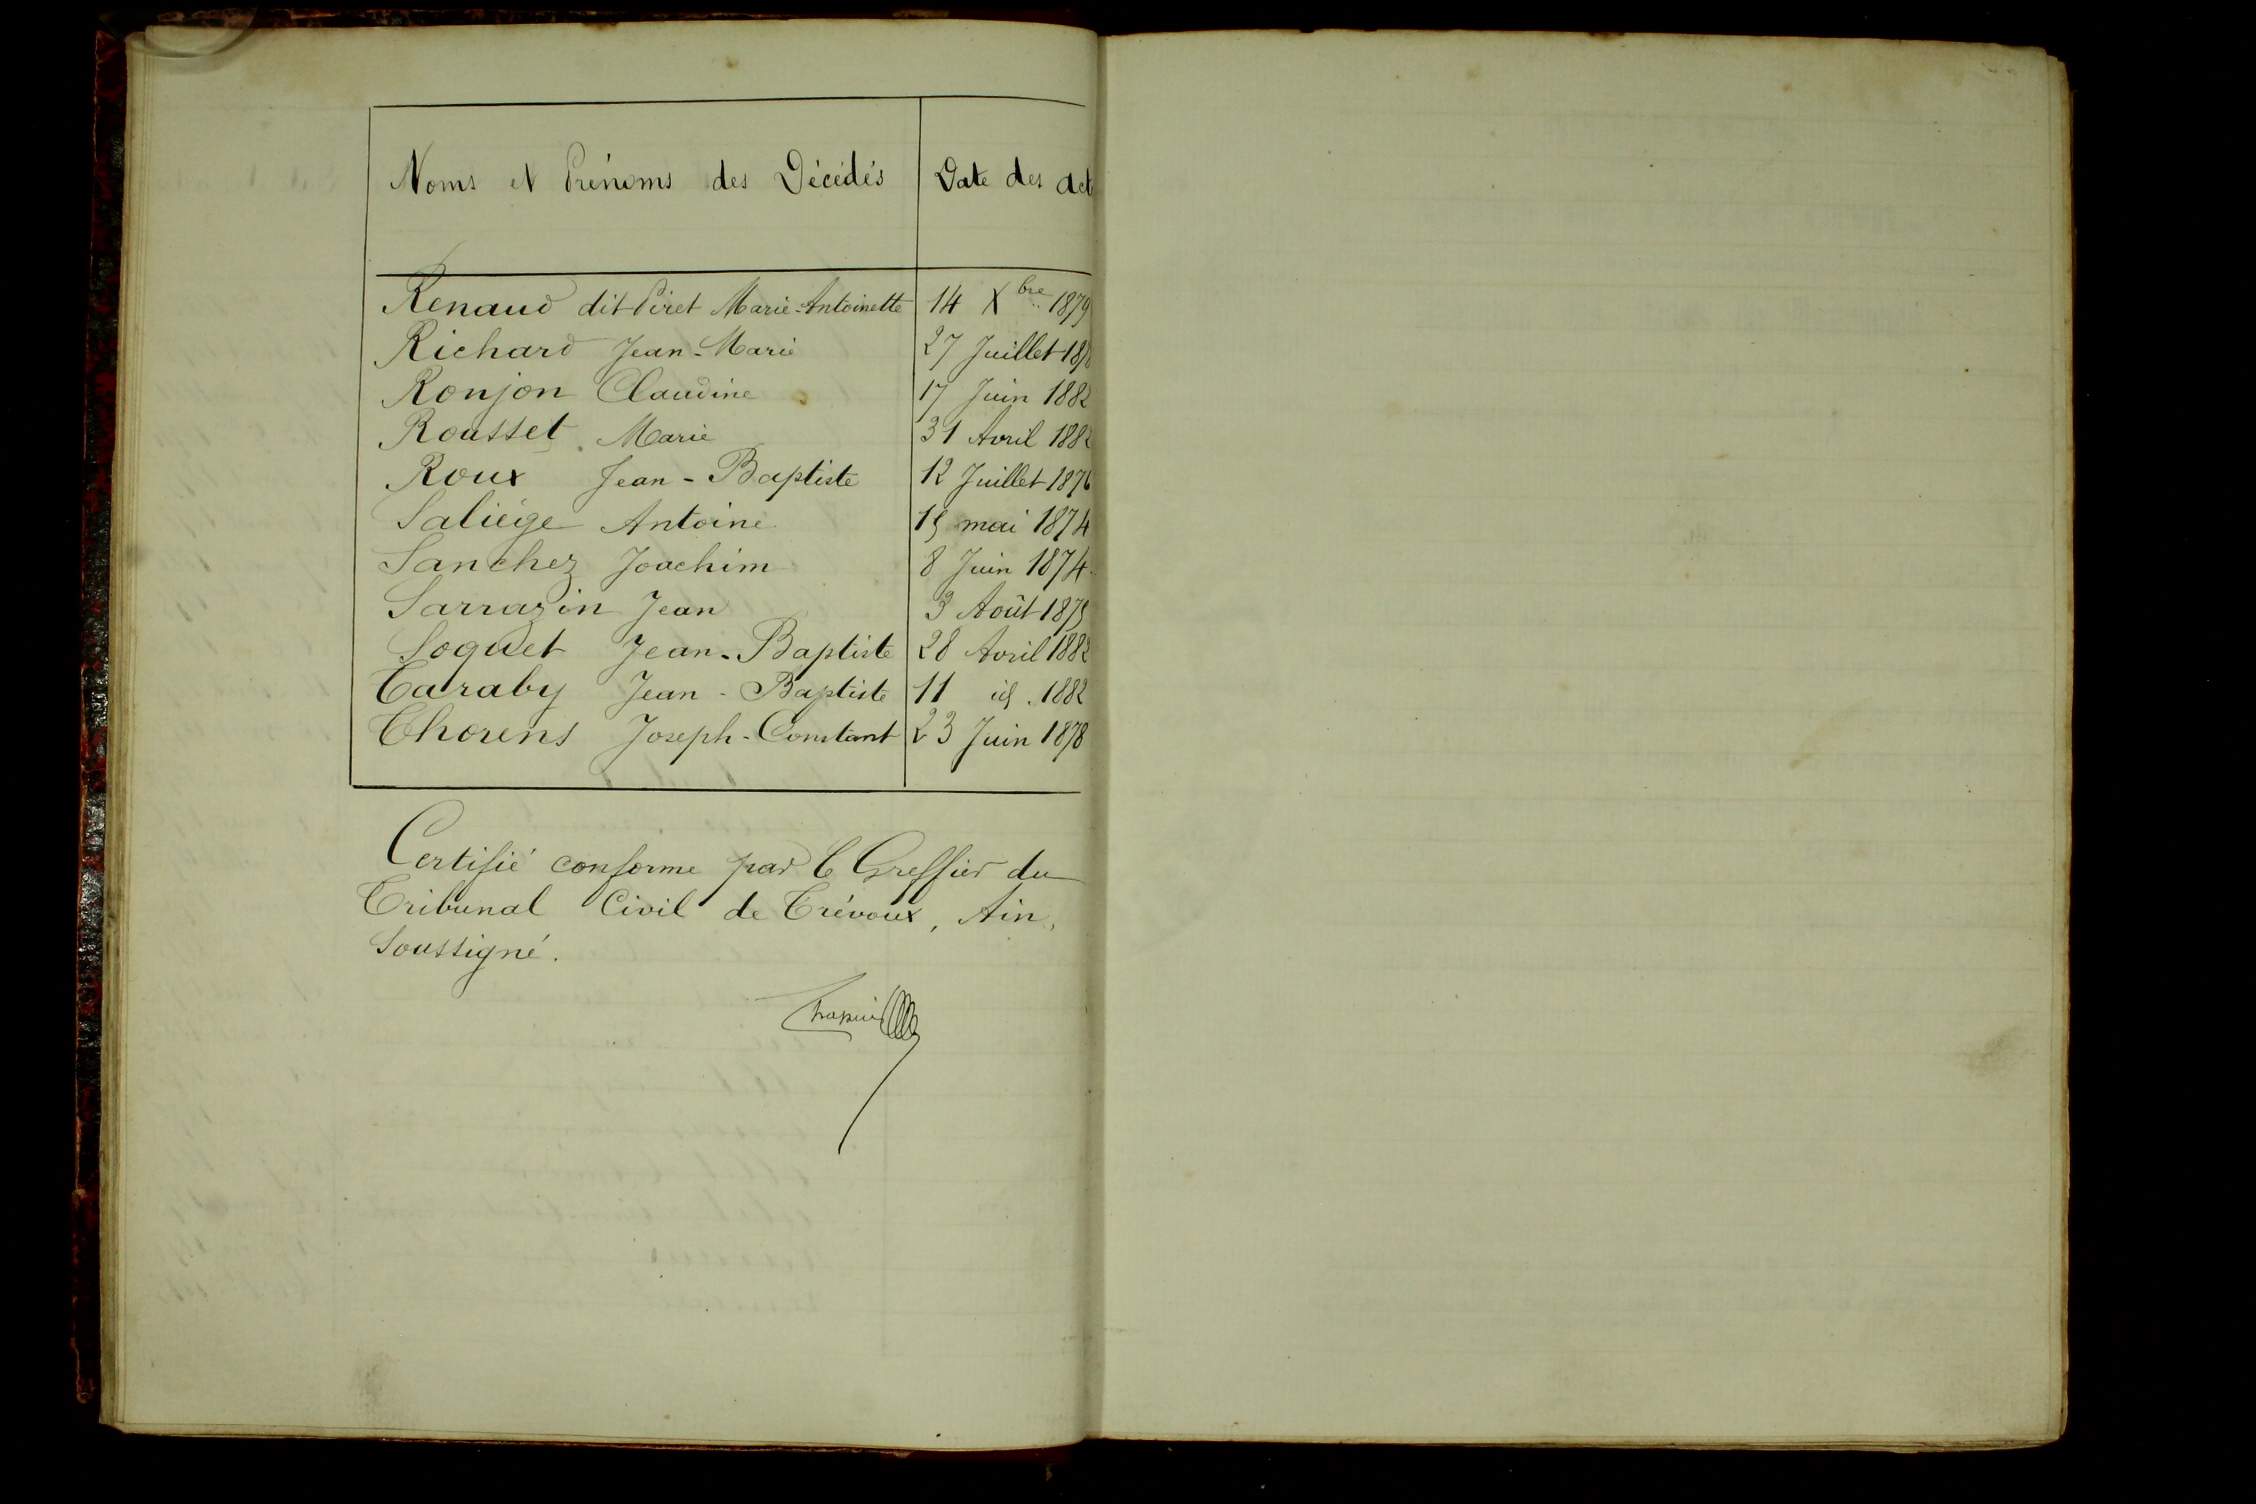 Noms et Prénoms des Décédés Date des act
Renaud dit Piret Marie-Antoinette 14 Xbre 1879
Richard Jean-Marie 27 Juillet 1878
Ronjon Claudine 17 Juin 1882
Rousset Marie 31 Avril 1882
Roux Jean-Baptiste 12 Juillet 1876
Saliège Antoine 15 mai 1874
Sanchez Joachim 8 Juin 1874
Sarrazin Jean 3 Août 1875
Soquet Jean-Baptiste 28 Avril 1882
Taraby Jean-Baptiste 11 id. 1882
Thorens Joseph-Constant 23 Juin 1878
Certifié conforme par le Greffier du
Tribunal Civil de Trévoux, Ain,
Soussigné.